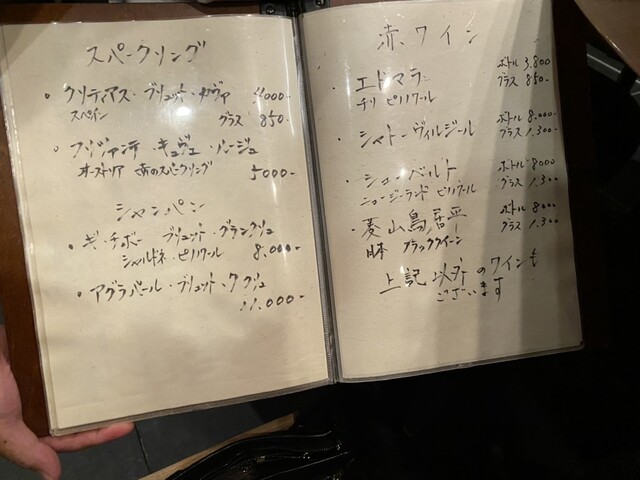 スパークリング
・クリティアス・ブリュット・カヴァ 4000-
スペイン グラス 850-
キュヴェ
オーストリア 赤のスパークリング 5000-
シャンパン
・ギ・チボー ブリュット・グランクリュ
シャルドネ・ピノノワール 8,000-
ブリュット
11,000-
赤ワイン
・エドマラ ボトル 3,800
チリ ピノノワール グラス 850-
・シャトーヴィルジール ボトル 8,000-
グラス 1,300-
・シューベルト ボトル 8000
ニュージーランド ピノノワール グラス 1,300
・菱山 ボトル 8000
日本 ブラッククイーン グラス 1,300
上記以外のワインも
ございます